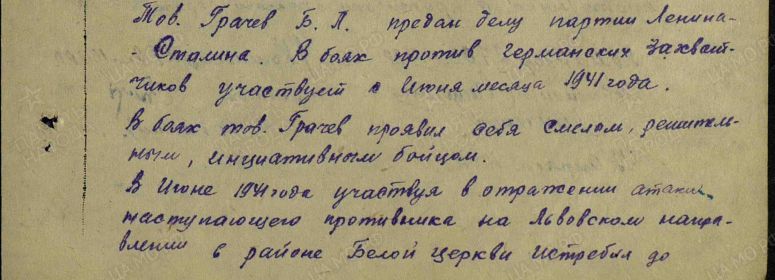 Тов. Грачев Б. Л. предан делу партии Ленина-
- Сталина. В боях против германских захват-
чиков участвует с Июня месяца 1941 года.
В боях тов. Грачев проявил себя смелым, решитель-
ным, инициативным бойцом.
В Июне 1941 года участвуя в отражении атаки
наступающего противника на Львовском направ-
влении в районе Белой Церкви истребил до